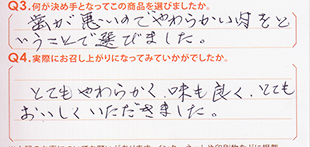 Q3.何が決め手となってこの商品を選びましたか。
歯が悪いのでやわらかい肉をと
いうことで選びました。
Q4.実際にお召し上がりになってみていかがでしたか。
とてもやわらかく、味も良く、とても
おいしくいただきました。